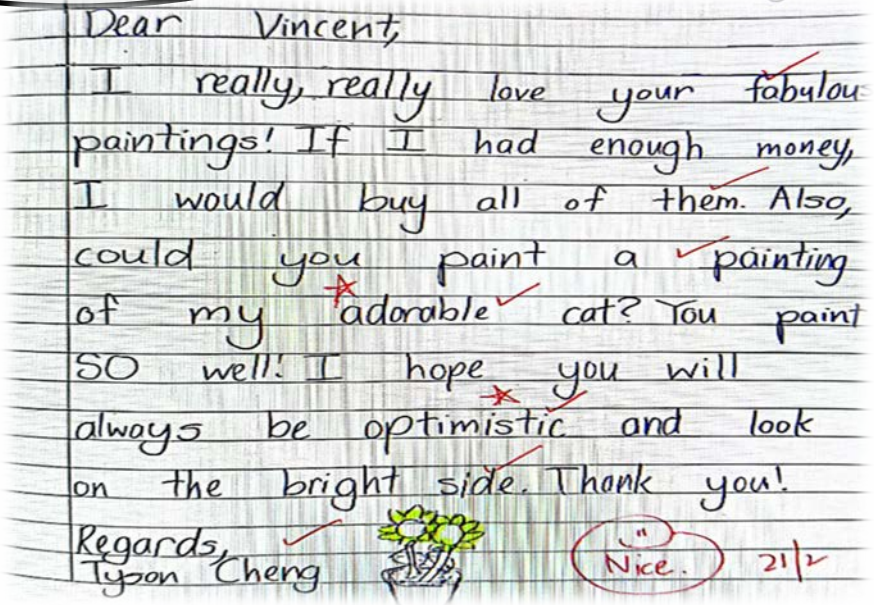 Dear Vincent,
I really, really love your fabulou
paintings! If I had enough money,
I would buy all of them. Also,
could you paint a painting
of my adorable cat? You paint
SO well! I hope you will
always be optimistic and look
on the bright side. Thank you!
Regards,
Tyson Cheng
Nice. 21/2